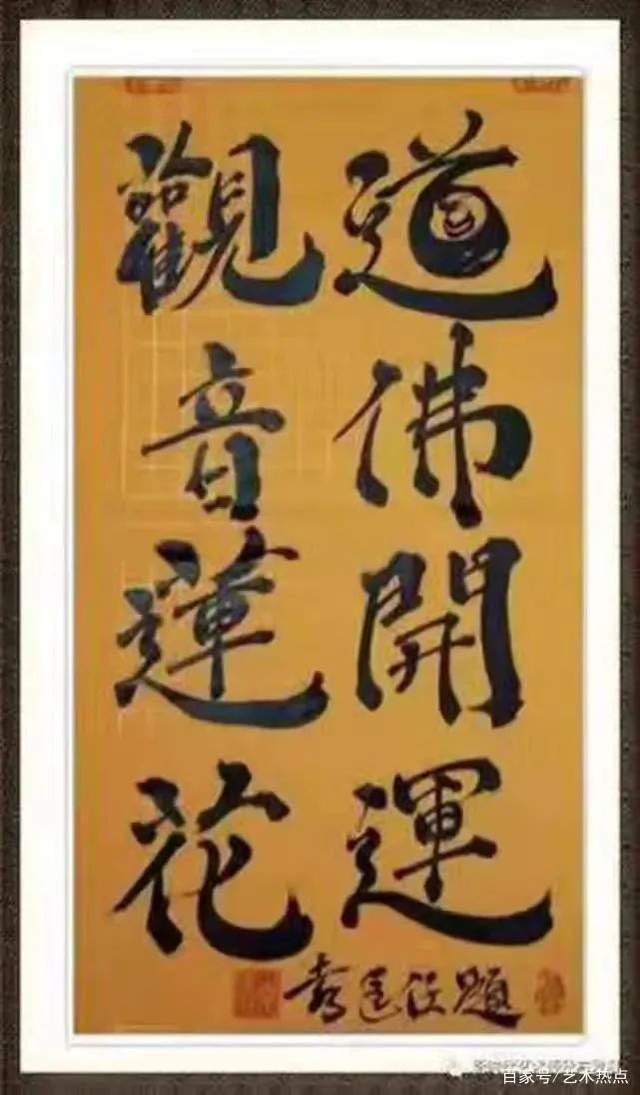 道佛開運
觀音蓮花
題
百家号/艺术热点